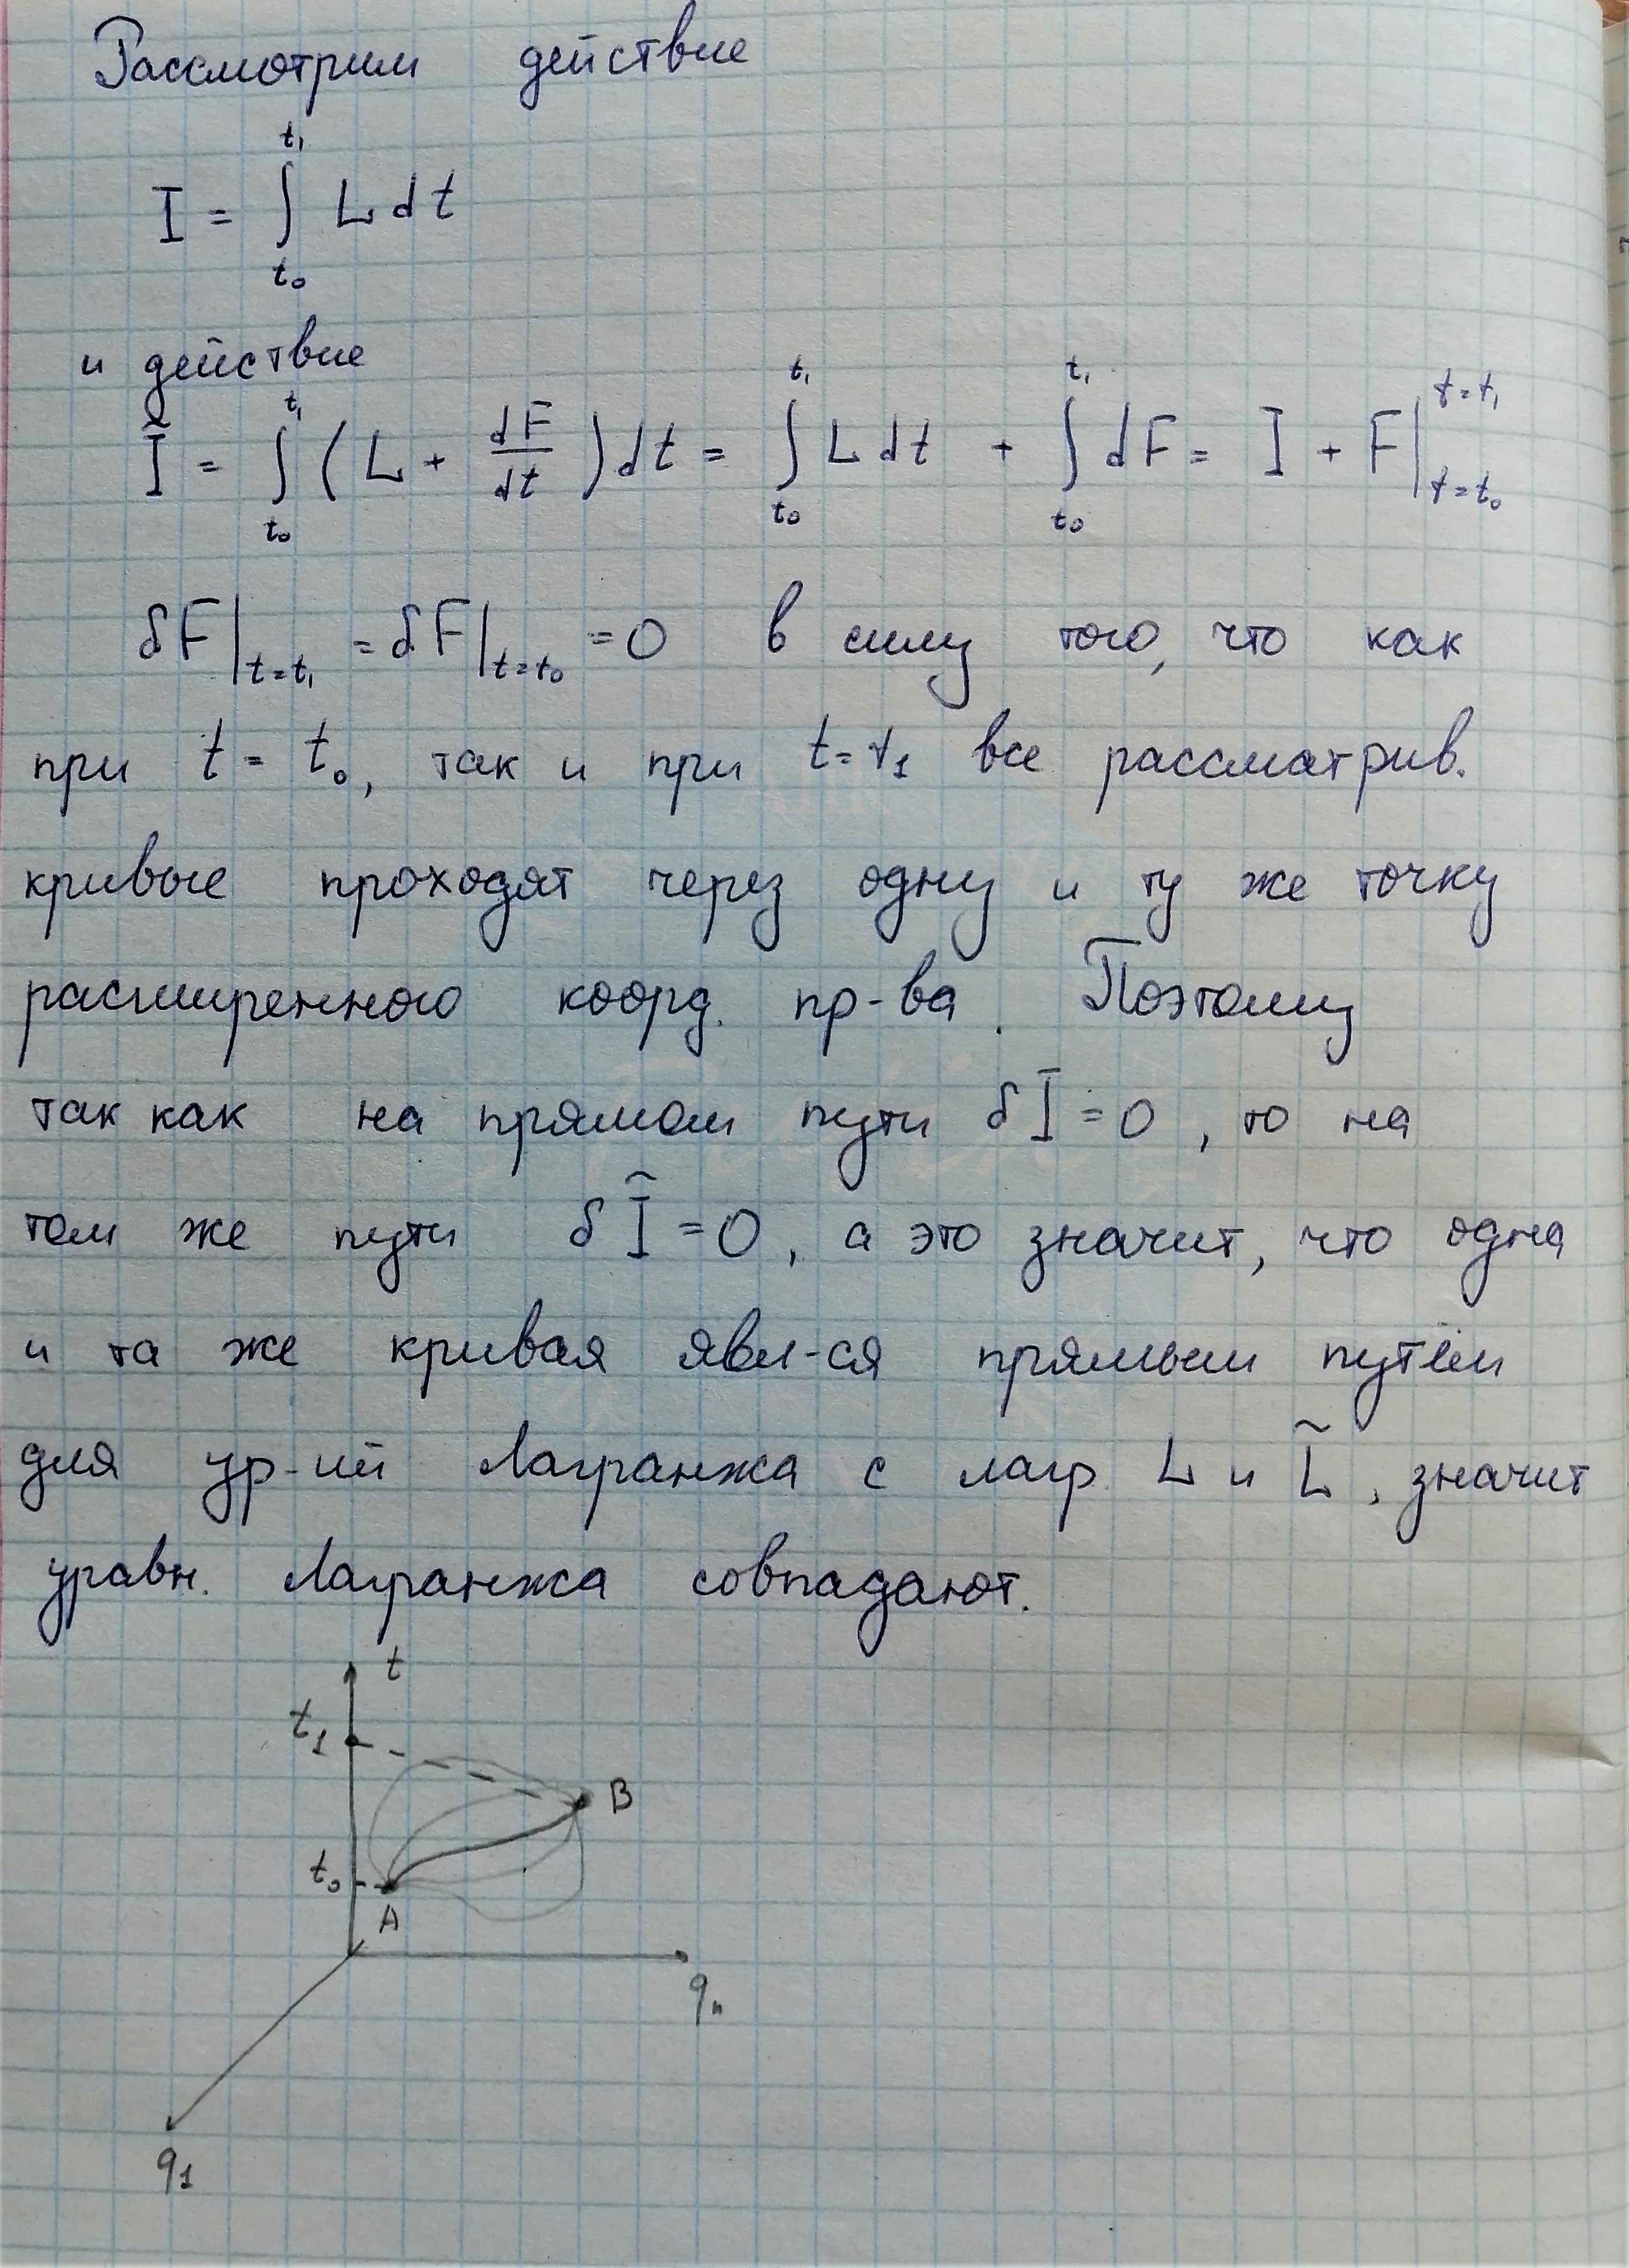 Рассмотрим действие
I = ∫_{t₀}^{t₁} L dt
и действие
Ĩ = ∫_{t₀}^{t₁} (L + dF/dt) dt = ∫_{t₀}^{t₁} L dt + ∫_{t₀}^{t₁} dF = I + F|_{t=t₀}^{t=t₁}
δF|_{t=t₁} = δF|_{t=t₀} = 0 в силу того, что как
при t = t₀, так и при t = t₁ все рассматрив.
кривые проходят через одну и ту же точку
расширенного коорд. пр-ва. Поэтому
так как на прямом пути δI = 0, то на
том же пути δĨ = 0, а это значит, что одна
и та же кривая явл-ся прямым путём
для ур-ий Лагранжа с лагр. L и L̃, значит
уравн. Лагранжа совпадают.
t
t₁
B
t₀
A
qₙ
q₁